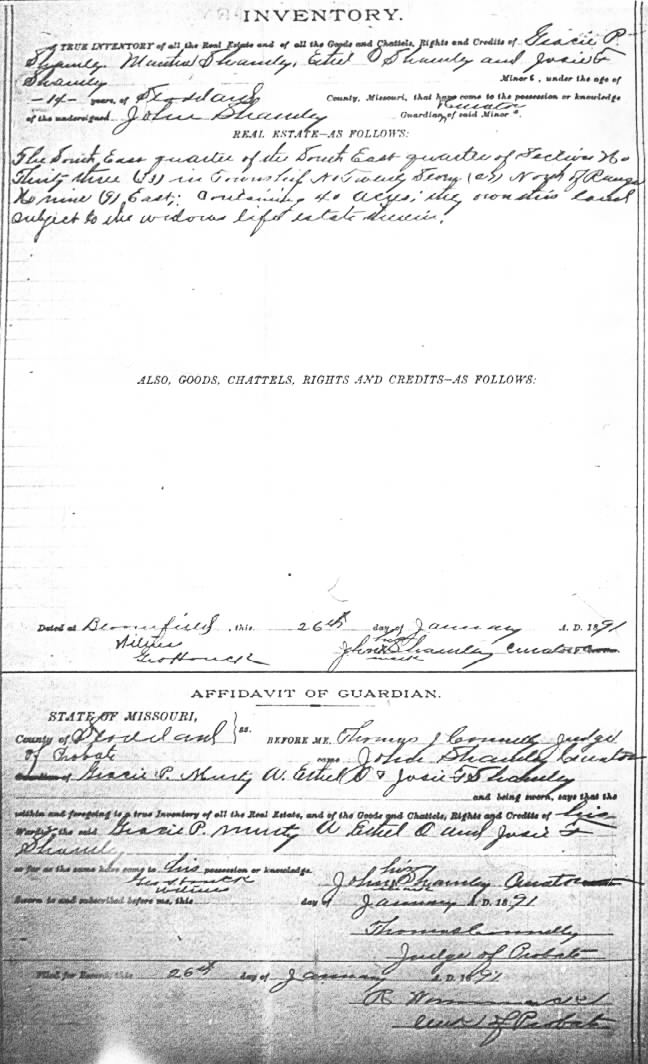 INVENTORY.
A TRUE INVENTORY of all the Real Estate and of all the Goods and Chattels, Rights and Credits of Gracie P.
Shamly, Shamly, Ethel O Shamly and Josie F
Shamly Minors, under the age of
-14- years, of Stoddard County, Missouri, that have come to the possession or knowledge
of the undersigned John Shamly Guardian Curator of said Minors.
REAL ESTATE—AS FOLLOWS:
The South East quarter of the South East quarter of Section No
Thirty three (33) in Township No Twenty North of Range
No nine (9) East; Containing 40 acres; they own this land
subject to the widows life estate therein.
ALSO, GOODS, CHATTELS, RIGHTS AND CREDITS—AS FOLLOWS:
Dated at Bloomfield, this 26th day of January A. D. 1891
Witness his
Geo Houck John x Shamly Curator
mark
AFFIDAVIT OF GUARDIAN.
STATE OF MISSOURI,
County of Stoddard } ss. BEFORE ME, Thomas J Connelly Judge
of Probate came John Shamly Curator
of Gracie P. A. Ethel O & Josie F Shamly
and being sworn, says that the
within and foregoing is a true Inventory of all the Real Estate, and of the Goods and Chattels, Rights and Credits of his
Wards, the said Gracie P. A Ethel O and Josie F
Shamly
so far as the same have come to his possession or knowledge. his
Geo Houck John x Shamly Curator
witness
Sworn to and subscribed before me, this day of January A. D. 1891
Thomas Connelly
Judge of Probate
Filed for Record, this 26th day of January A. D. 1891
R
Clerk of Probate